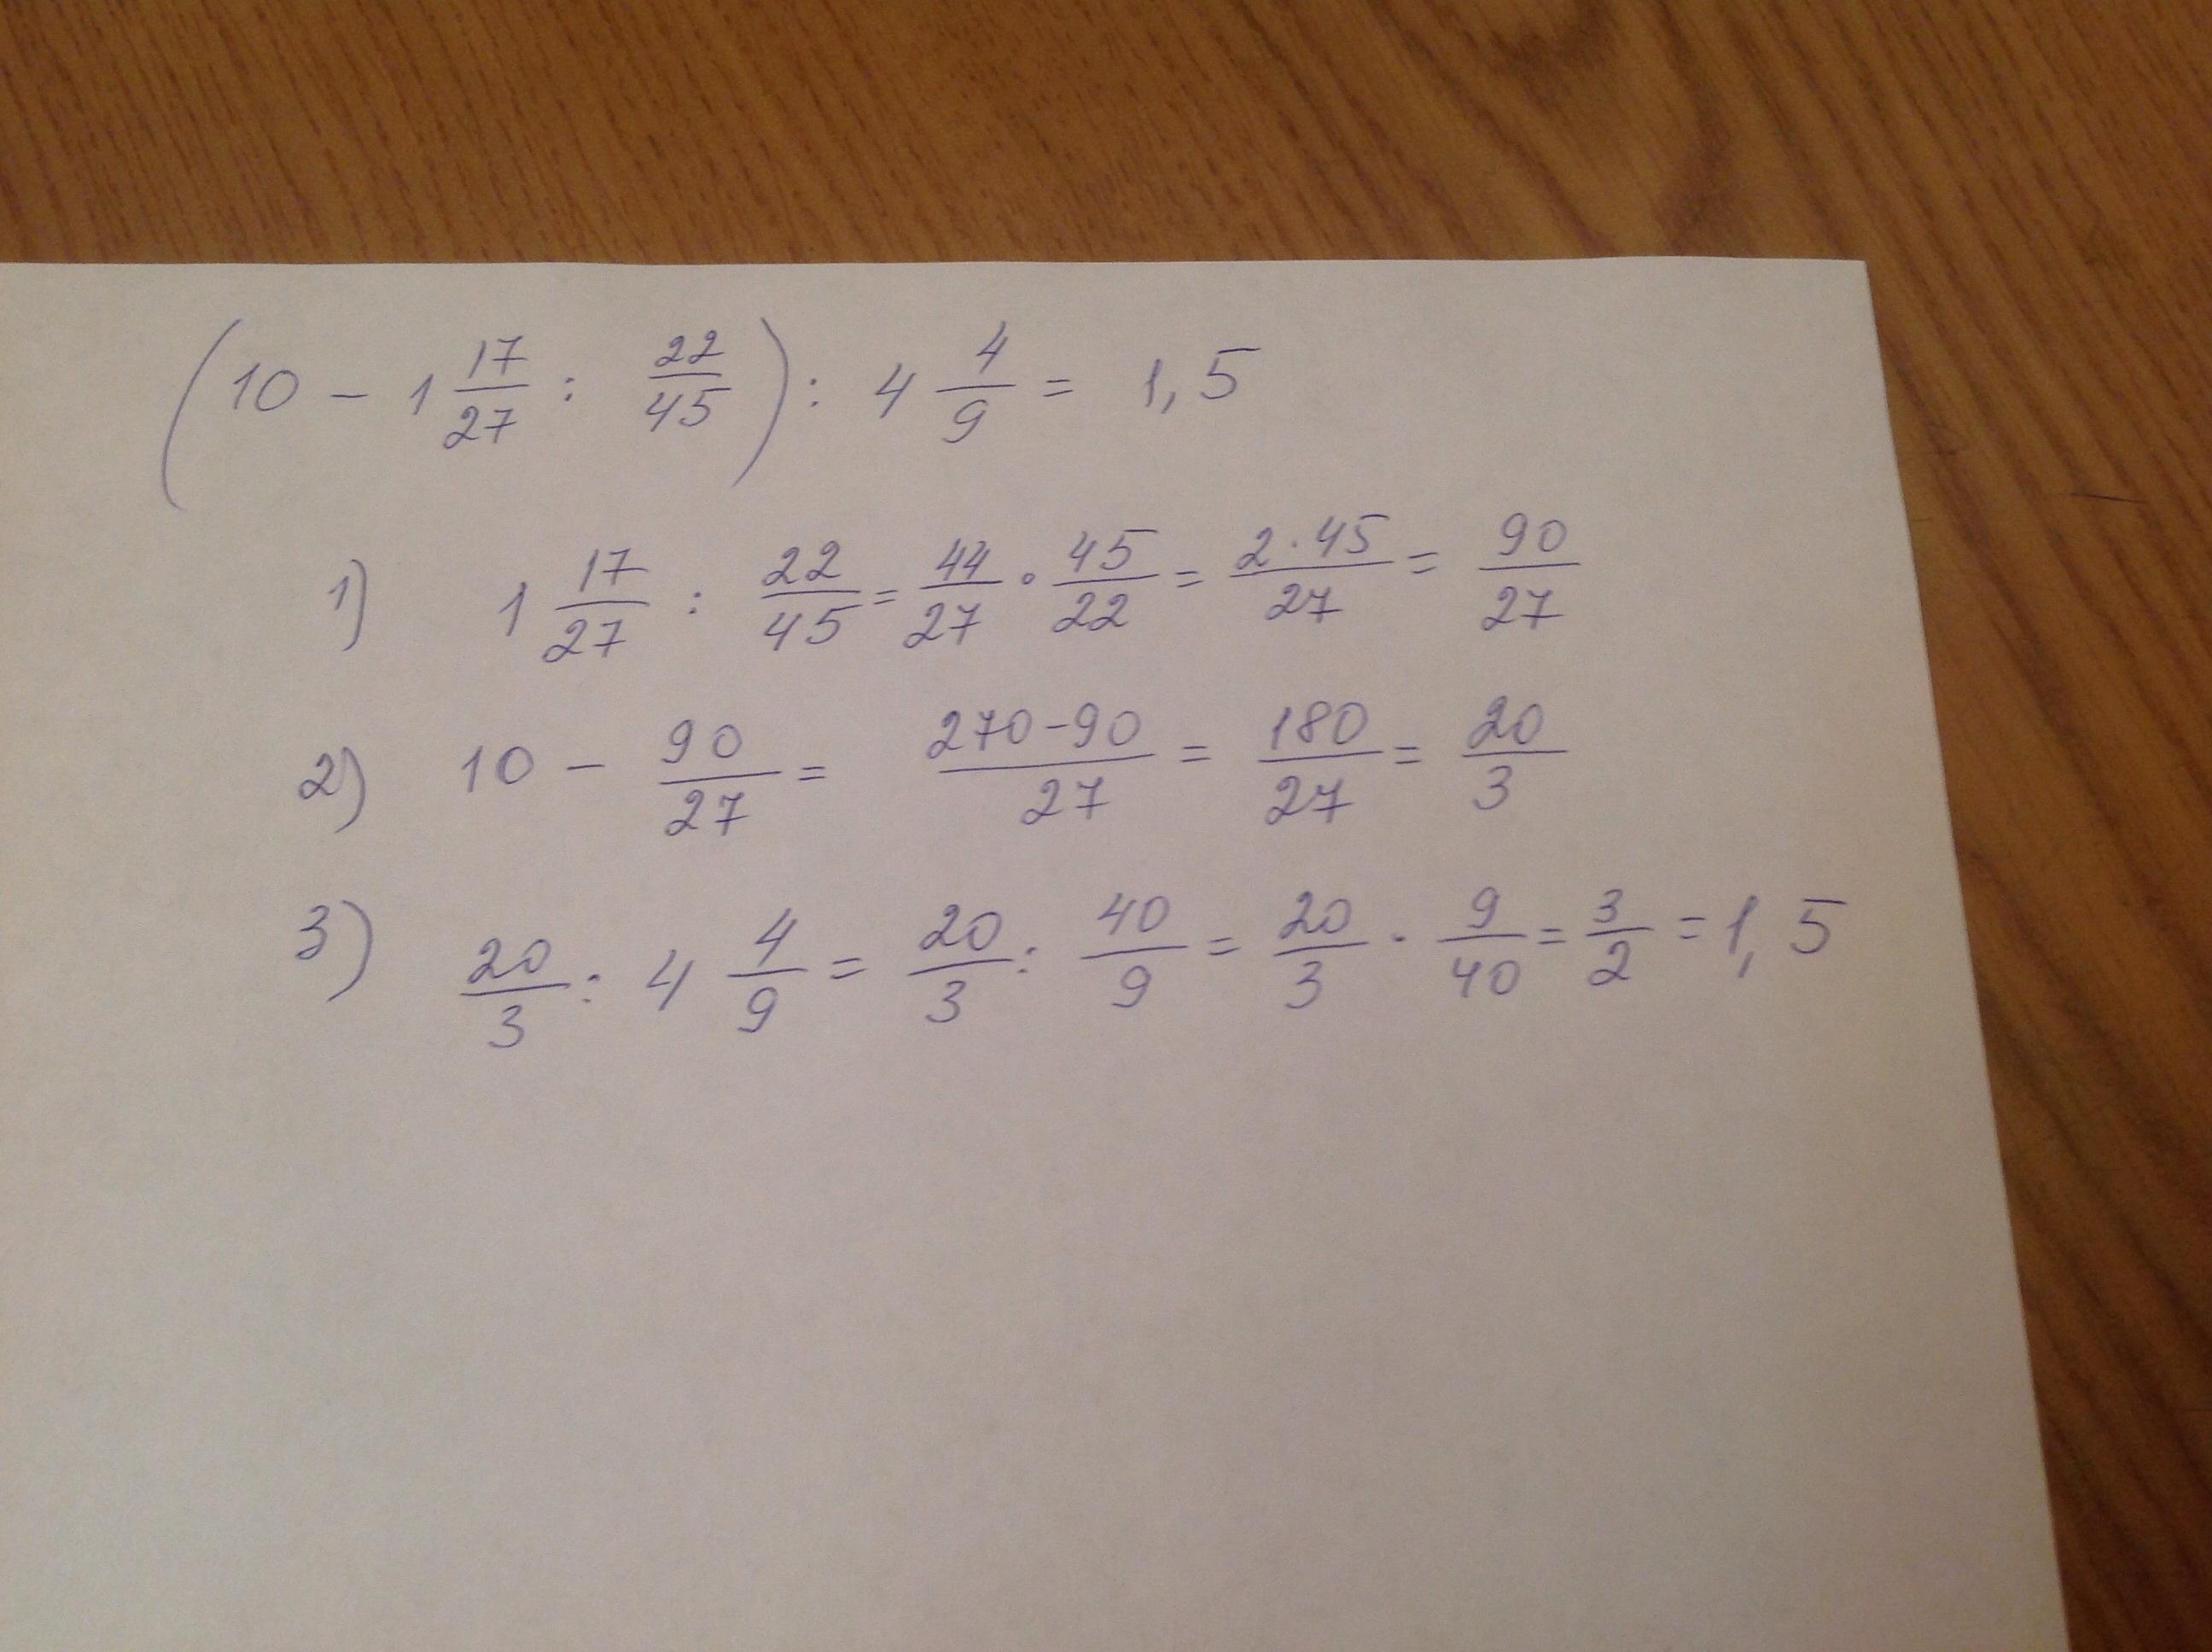 (10 - 1 17/27 : 22/45) : 4 4/9 = 1,5
1) 1 17/27 : 22/45 = 44/27 · 45/22 = 2·45/27 = 90/27
2) 10 - 90/27 = 270-90/27 = 180/27 = 20/3
3) 20/3 : 4 4/9 = 20/3 : 40/9 = 20/3 · 9/40 = 3/2 = 1,5